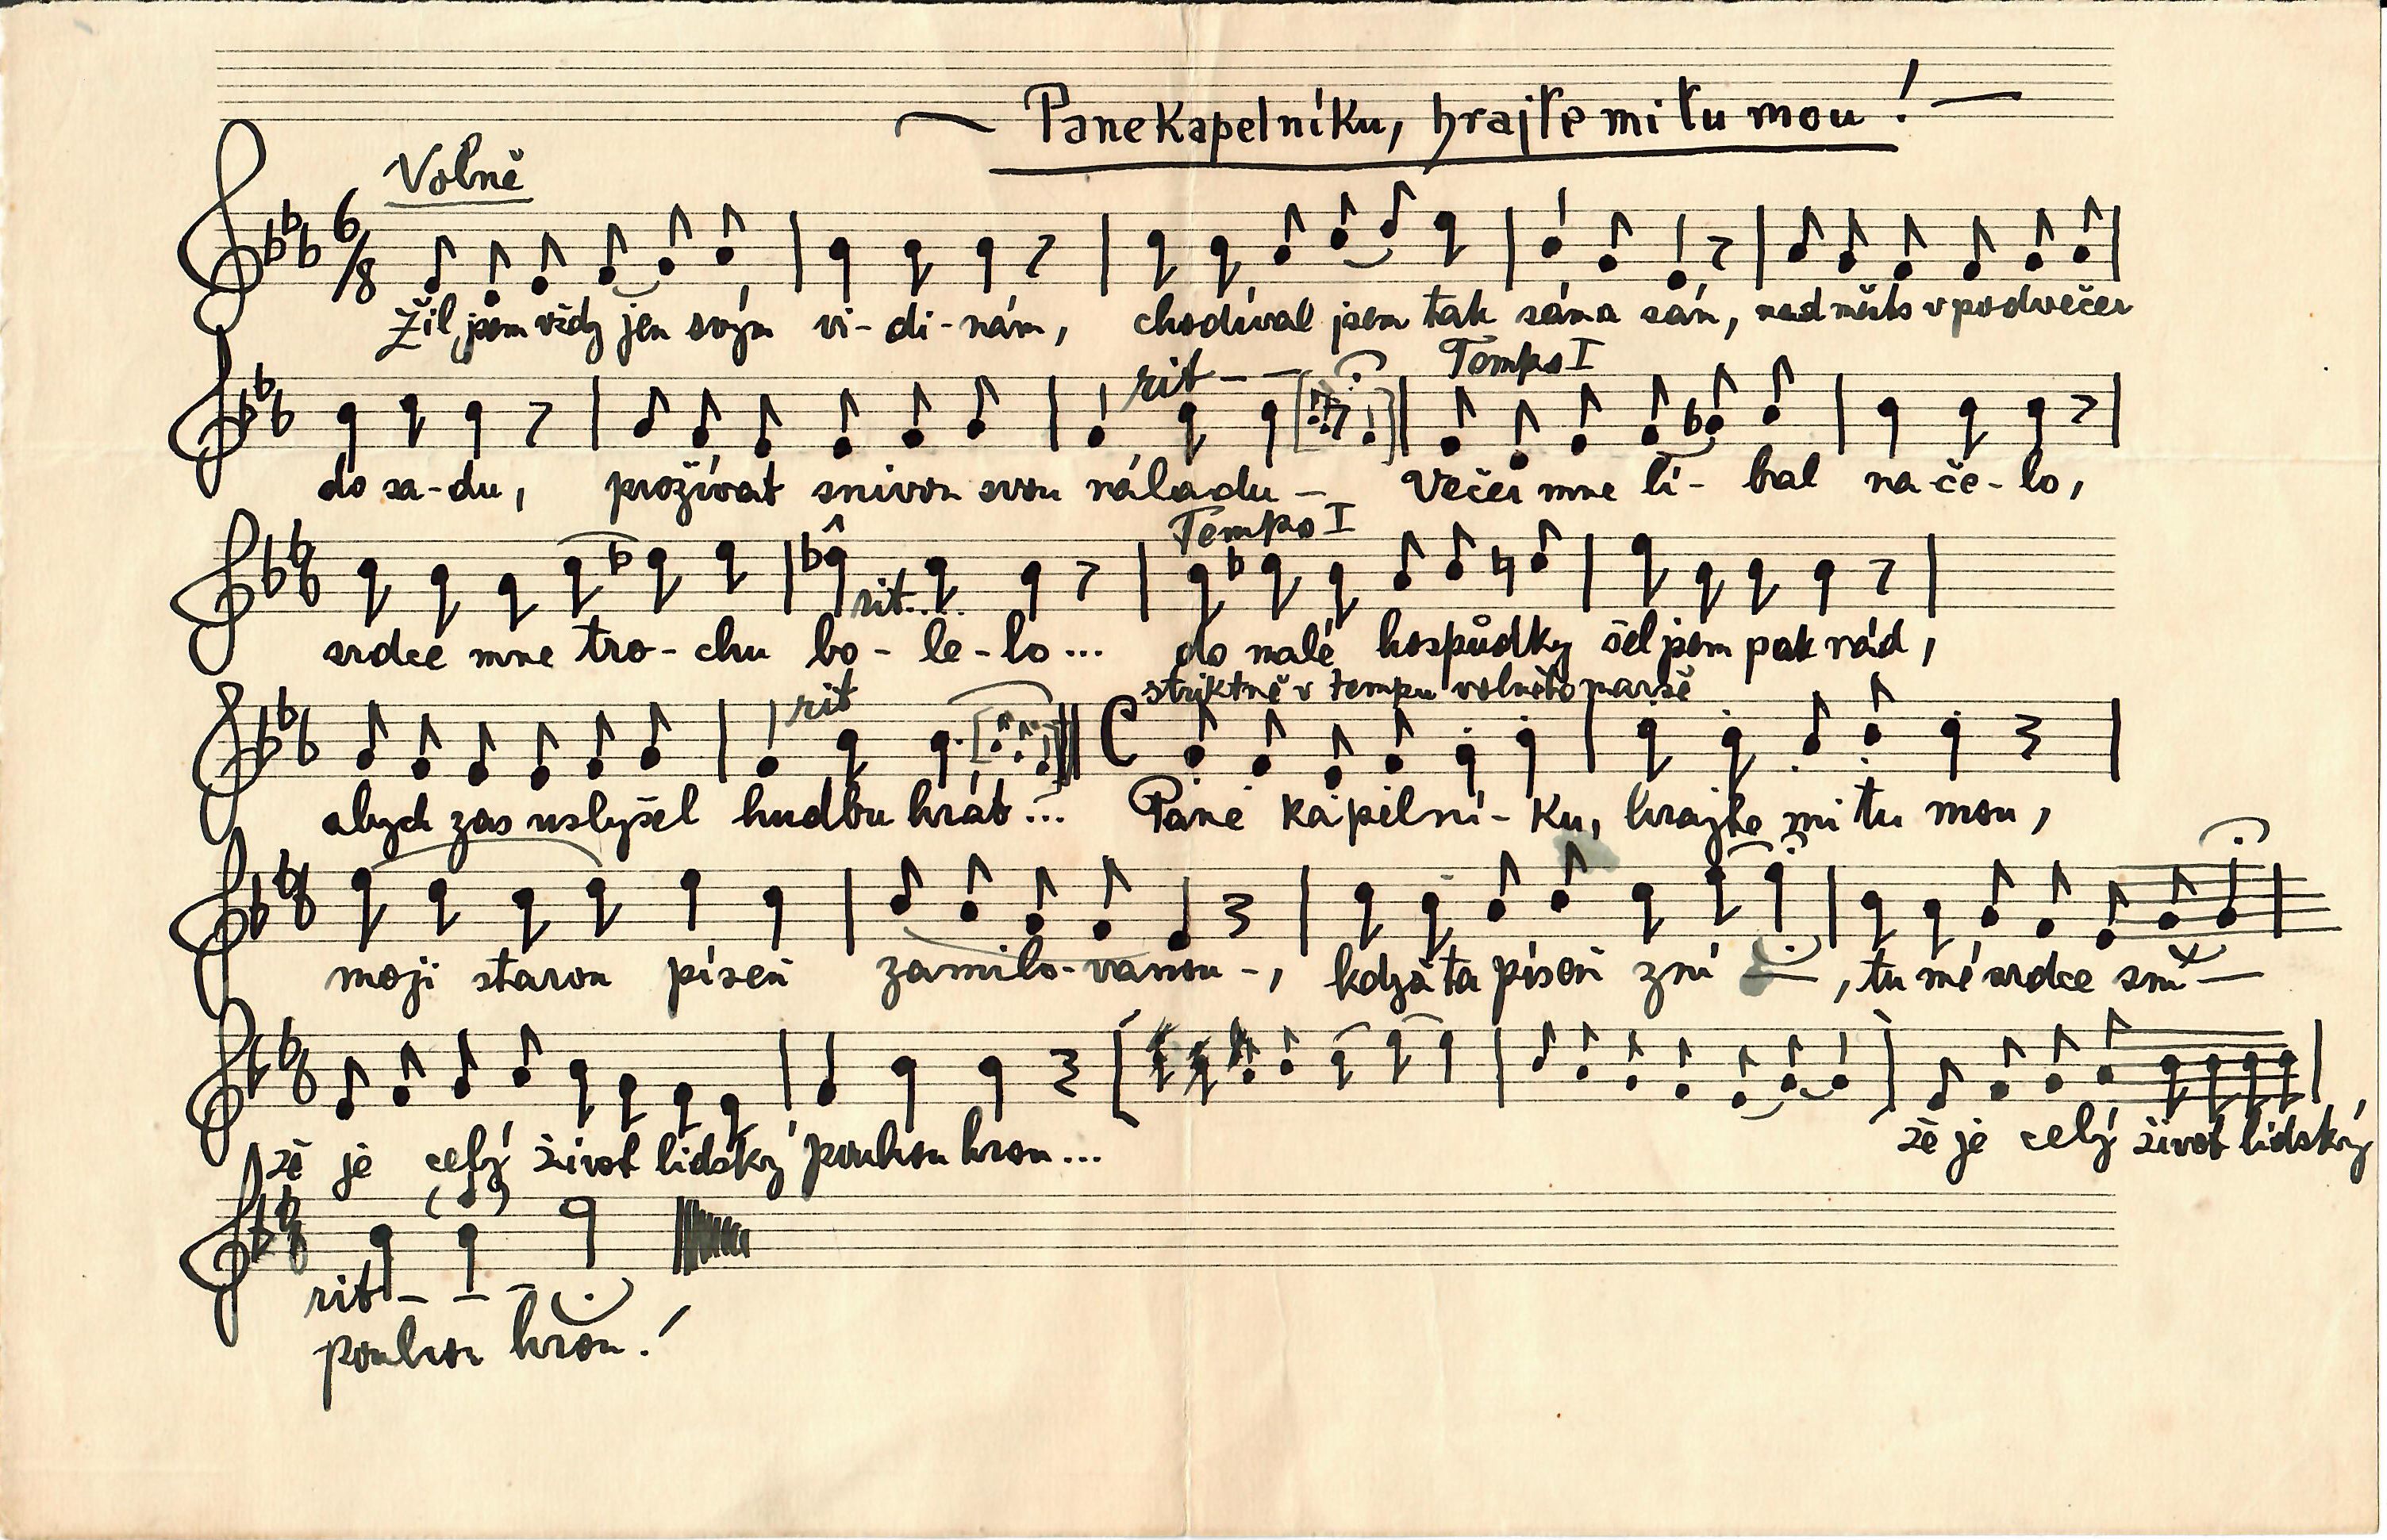 Pane kapelníku, hrajte mi tu mou!
Volně
6/8
Žil jsem vždy jen svým vi-di-nám, chodíval jsem tak sám a sám, v podvečer
rit Tempo I
do sa-du, prožívat snivou svou náladu - Večer mne lí-bal na če-lo,
Tempo I
rit...
srdce mne tro-chu bo-le-lo... do malé hospůdky šel jsem pak rád,
rit striktně v tempu volného marše
C
abych zas uslyšel hudbu hrát... Pane kapelní-ku, hrajte mi tu mou,
moji starou píseň zamilo-vanou-, když ta píseň zní —, tu mé srdce sní —
že je celý život lidský pouhou hrou... že je celý život lidský,
rit - - -
pouhou hrou!